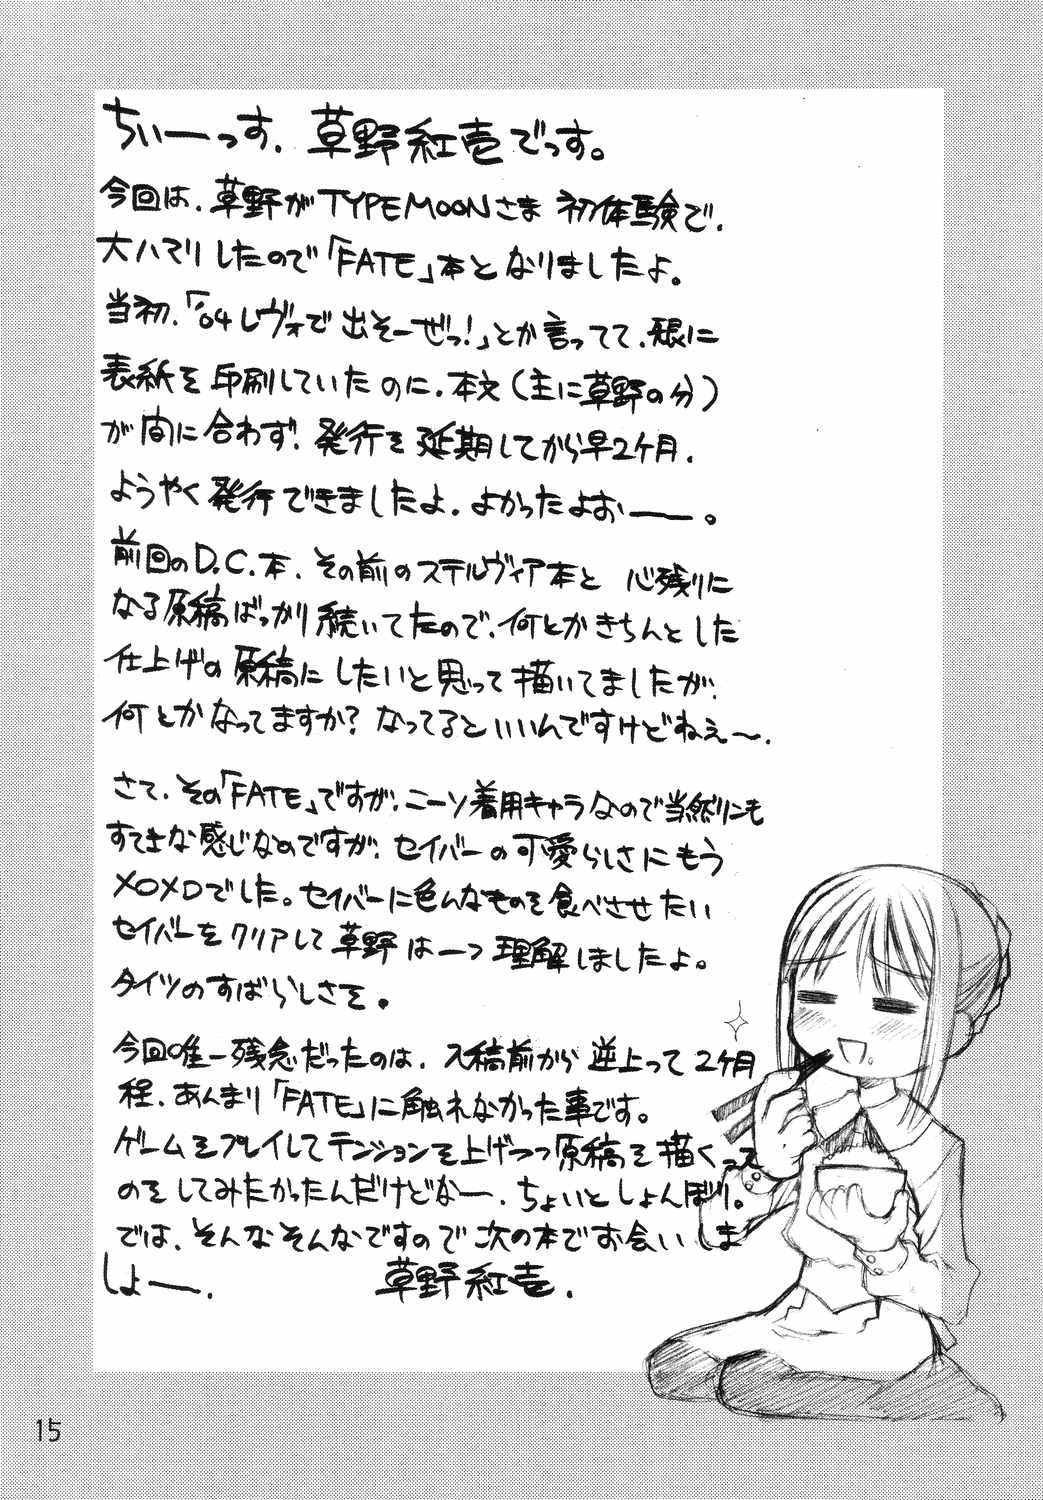 ちぃーっす、草野紅壱でっす。
今回は、草野がTYPEMOONさま初体験で、
大ハマリしたので「FATE」本となりましたよ。
当初、「'04レヴォで出そーぜっ!」とか言ってて、
表紙を印刷していたのに、本文(主に草野の分)
が間に合わず、発行を延期してから早2ヶ月、
ようやく発行できましたよ、よかったよおーー。
前回のD.C.本、その前のステルヴィア本と 心残りに
なる原稿ばっかり続いてたので、何とかきちんとした
仕上げの原稿にしたいと思って描いてましたが、
何とかなってますか?なってるといいんですけどねぇ〜、
さて、その「FATE」ですが、ニーソ着用キャラなので当然リンも
すてきな感じなのですが、セイバーの可愛らしさにもう
メロメロでした。セイバーに色んなものを食べさせたい
セイバーをクリアして草野は一つ理解しましたよ。
タイツのすばらしさを。
今回唯一残念だったのは、入稿前から逆上って2ヶ月
程、あんまり「FATE」に触れなかった事です。
ゲームをプレイしてテンションを上げつつ原稿を描くって
のをしてみたかったんだけどなー、ちょいとしょんぼり。
では、そんなそんなですので次の本でお会いしま
しょー、 草野紅壱、
15